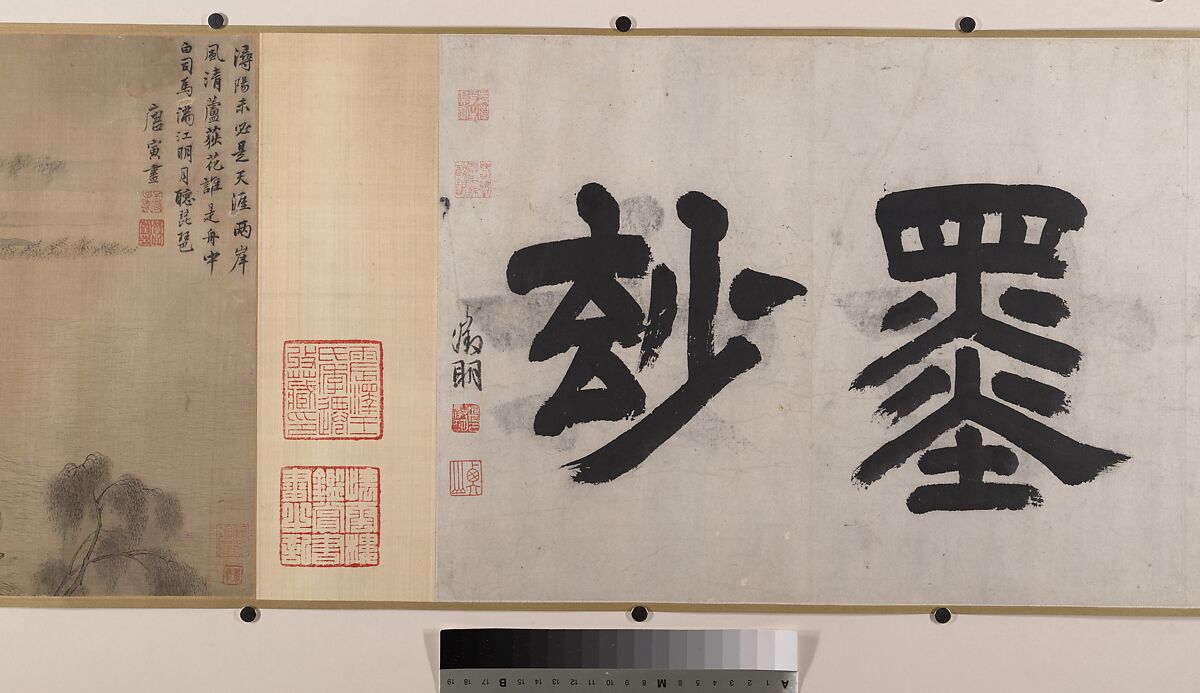 墨玅
徵明
震澤王
氏季遷
收藏印
潯陽未必是天涯兩岸
風清蘆荻花誰是舟中
白司馬滿江明月聽琵琶
唐寅畫
A 1 2 3 4 5 6 M 8 9 10 11 12 13 14 15 B 17 18 19